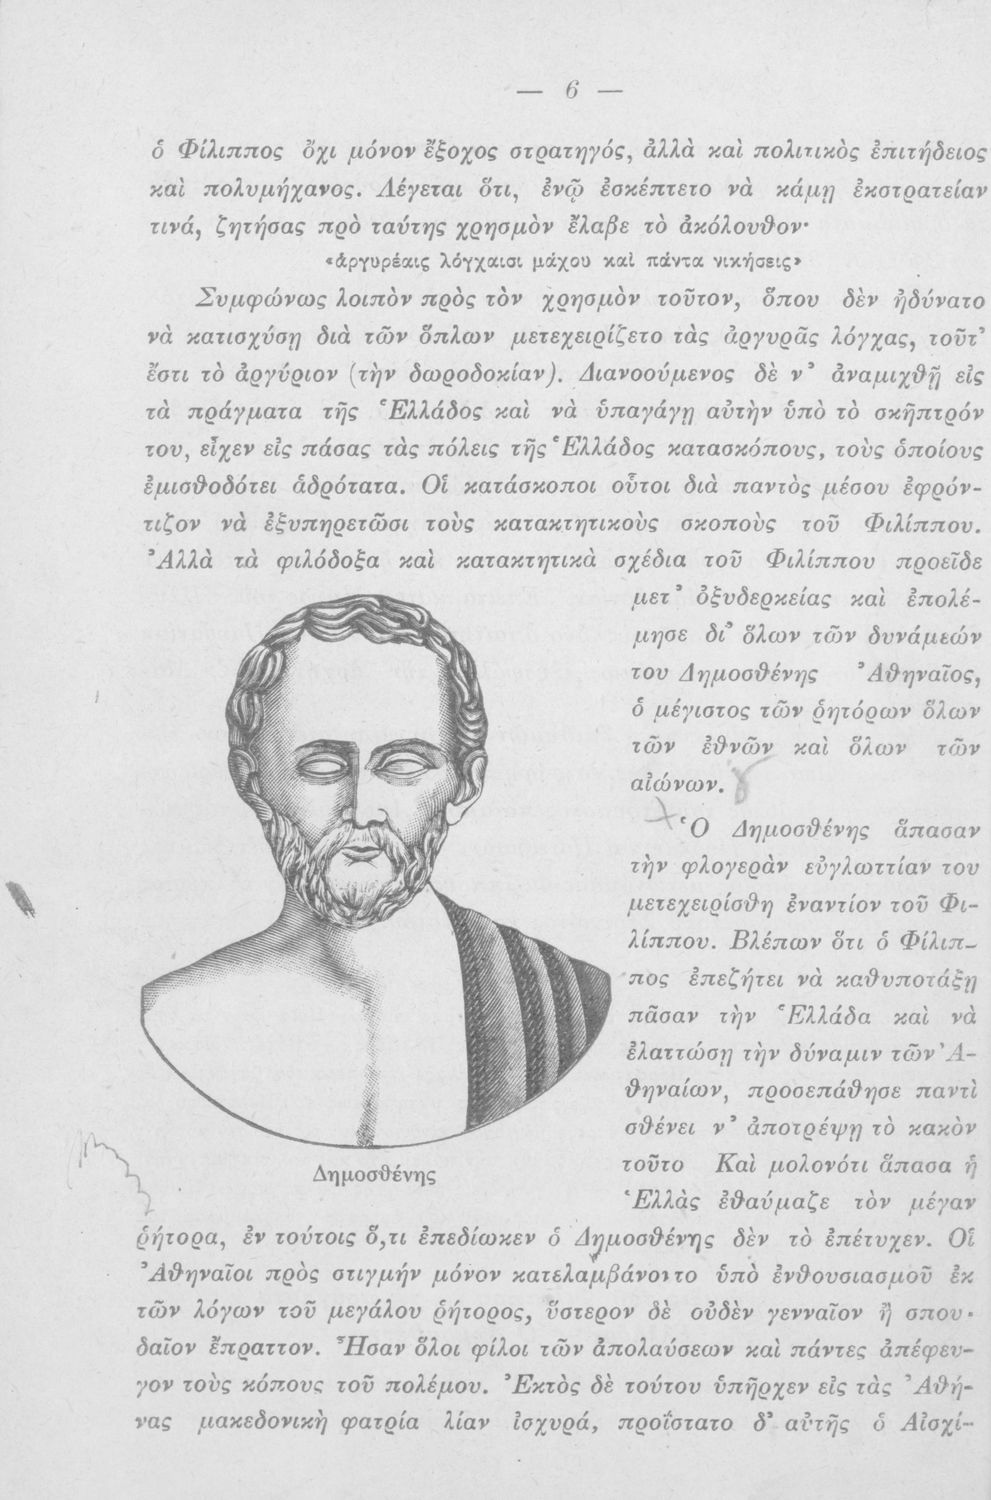 — 6 —
ὁ Φίλιππος ὄχι μόνον ἔξοχος στρατηγός, ἀλλὰ καὶ πολιτικὸς ἐπιτήδειος
καὶ πολυμήχανος. Λέγεται ὅτι, ἐνῷ ἐσκέπτετο νὰ κάμῃ ἐκστρατείαν
τινά, ζητήσας πρὸ ταύτης χρησμὸν ἔλαβε τὸ ἀκόλουθον·
«ἀργυρέαις λόγχαισι μάχου καὶ πάντα νικήσεις»
Συμφώνως λοιπὸν πρὸς τὸν χρησμὸν τοῦτον, ὅπου δὲν ἠδύνατο
νὰ κατισχύσῃ διὰ τῶν ὅπλων μετεχειρίζετο τὰς ἀργυρᾶς λόγχας, τοῦτ’
ἔστι τὸ ἀργύριον (τὴν δωροδοκίαν). Διανοούμενος δὲ ν’ ἀναμιχθῇ εἰς
τὰ πράγματα τῆς Ἑλλάδος καὶ νὰ ὑπαγάγῃ αὐτὴν ὑπὸ τὸ σκῆπτρόν
του, εἶχεν εἰς πάσας τὰς πόλεις τῆς Ἑλλάδος κατασκόπους, τοὺς ὁποίους
ἐμισθοδότει ἁδρότατα. Οἱ κατάσκοποι οὗτοι διὰ παντὸς μέσου ἐφρόν-
τιζον νὰ ἐξυπηρετῶσι τοὺς κατακτητικοὺς σκοποὺς τοῦ Φιλίππου.
Ἀλλὰ τὰ φιλόδοξα καὶ κατακτητικὰ σχέδια τοῦ Φιλίππου προεῖδε
μετ’ ὀξυδερκείας καὶ ἐπολέ-
μησε δι’ ὅλων τῶν δυνάμεών
του Δημοσθένης Ἀθηναῖος,
ὁ μέγιστος τῶν ῥητόρων ὅλων
τῶν ἐθνῶν καὶ ὅλων τῶν
αἰώνων.
Ὁ Δημοσθένης ἅπασαν
τὴν φλογερὰν εὐγλωττίαν του
μετεχειρίσθη ἐναντίον τοῦ Φι-
λίππου. Βλέπων ὅτι ὁ Φίλιπ-
πος ἐπεζήτει νὰ καθυποτάξῃ
πᾶσαν τὴν Ἑλλάδα καὶ νὰ
ἐλαττώσῃ τὴν δύναμιν τῶν Ἀ-
θηναίων, προσεπάθησε παντὶ
σθένει ν’ ἀποτρέψῃ τὸ κακὸν
τοῦτο Καὶ μολονότι ἅπασα ἡ
Ἑλλὰς ἐθαύμαζε τὸν μέγαν
Δημοσθένης
ῥήτορα, ἐν τούτοις ὅ,τι ἐπεδίωκεν ὁ Δημοσθένης δὲν τὸ ἐπέτυχεν. Οἱ
Ἀθηναῖοι πρὸς στιγμὴν μόνον κατελαμβάνοντο ὑπὸ ἐνθουσιασμοῦ ἐκ
τῶν λόγων τοῦ μεγάλου ῥήτορος, ὕστερον δὲ οὐδὲν γενναῖον ἢ σπου-
δαῖον ἔπραττον. Ἦσαν ὅλοι φίλοι τῶν ἀπολαύσεων καὶ πάντες ἀπέφευ-
γον τοὺς κόπους τοῦ πολέμου. Ἐκτὸς δὲ τούτου ὑπῆρχεν εἰς τὰς Ἀθή-
νας μακεδονικὴ φατρία λίαν ἰσχυρά, προΐστατο δ’ αὐτῆς ὁ Αἰσχί-